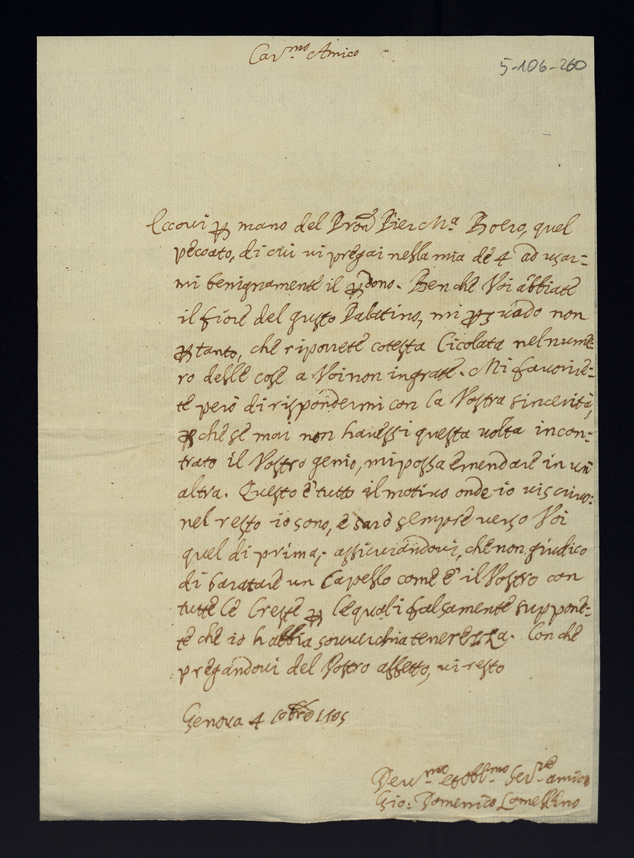 Car.mo Amico
5-106-260
Eccovi ꝑ mano del Pron Pier Ma Boero, quel
peccato, di cui vi pregai nella mia de 4 ad usar=
mi benignamente il ꝑdono. Ben che Voi abbiate
il fiore del gusto Palatino, mi ꝑsuado non
ꝑtanto, che riporrete cotesta Cicolata nel nume=
ro delle cose a Voi non ingrate. Mi favorire=
te però di rispondermi con la Vostra sincerità,
ꝑche se mai non havessi questa volta incon=
trato il Vostro genio, mi possa emendare in un
altra. Questo è tutto il motivo onde io vi scrivo:
nel resto io sono, e sarò sempre verso Voi
quel di prima; assicurandovi, che non giudico
di baratare un Capello come è il Vostro con
tutte le Creste ꝑ le quali falsamente suppone=
te che io habbia souverchia tenerezza. Con che
pregandovi del Vostro affetto, vi resto
Genova 4 1705
Dev.mo et Obb.mo Ser.re amico
Gio: Domenico Lomellino